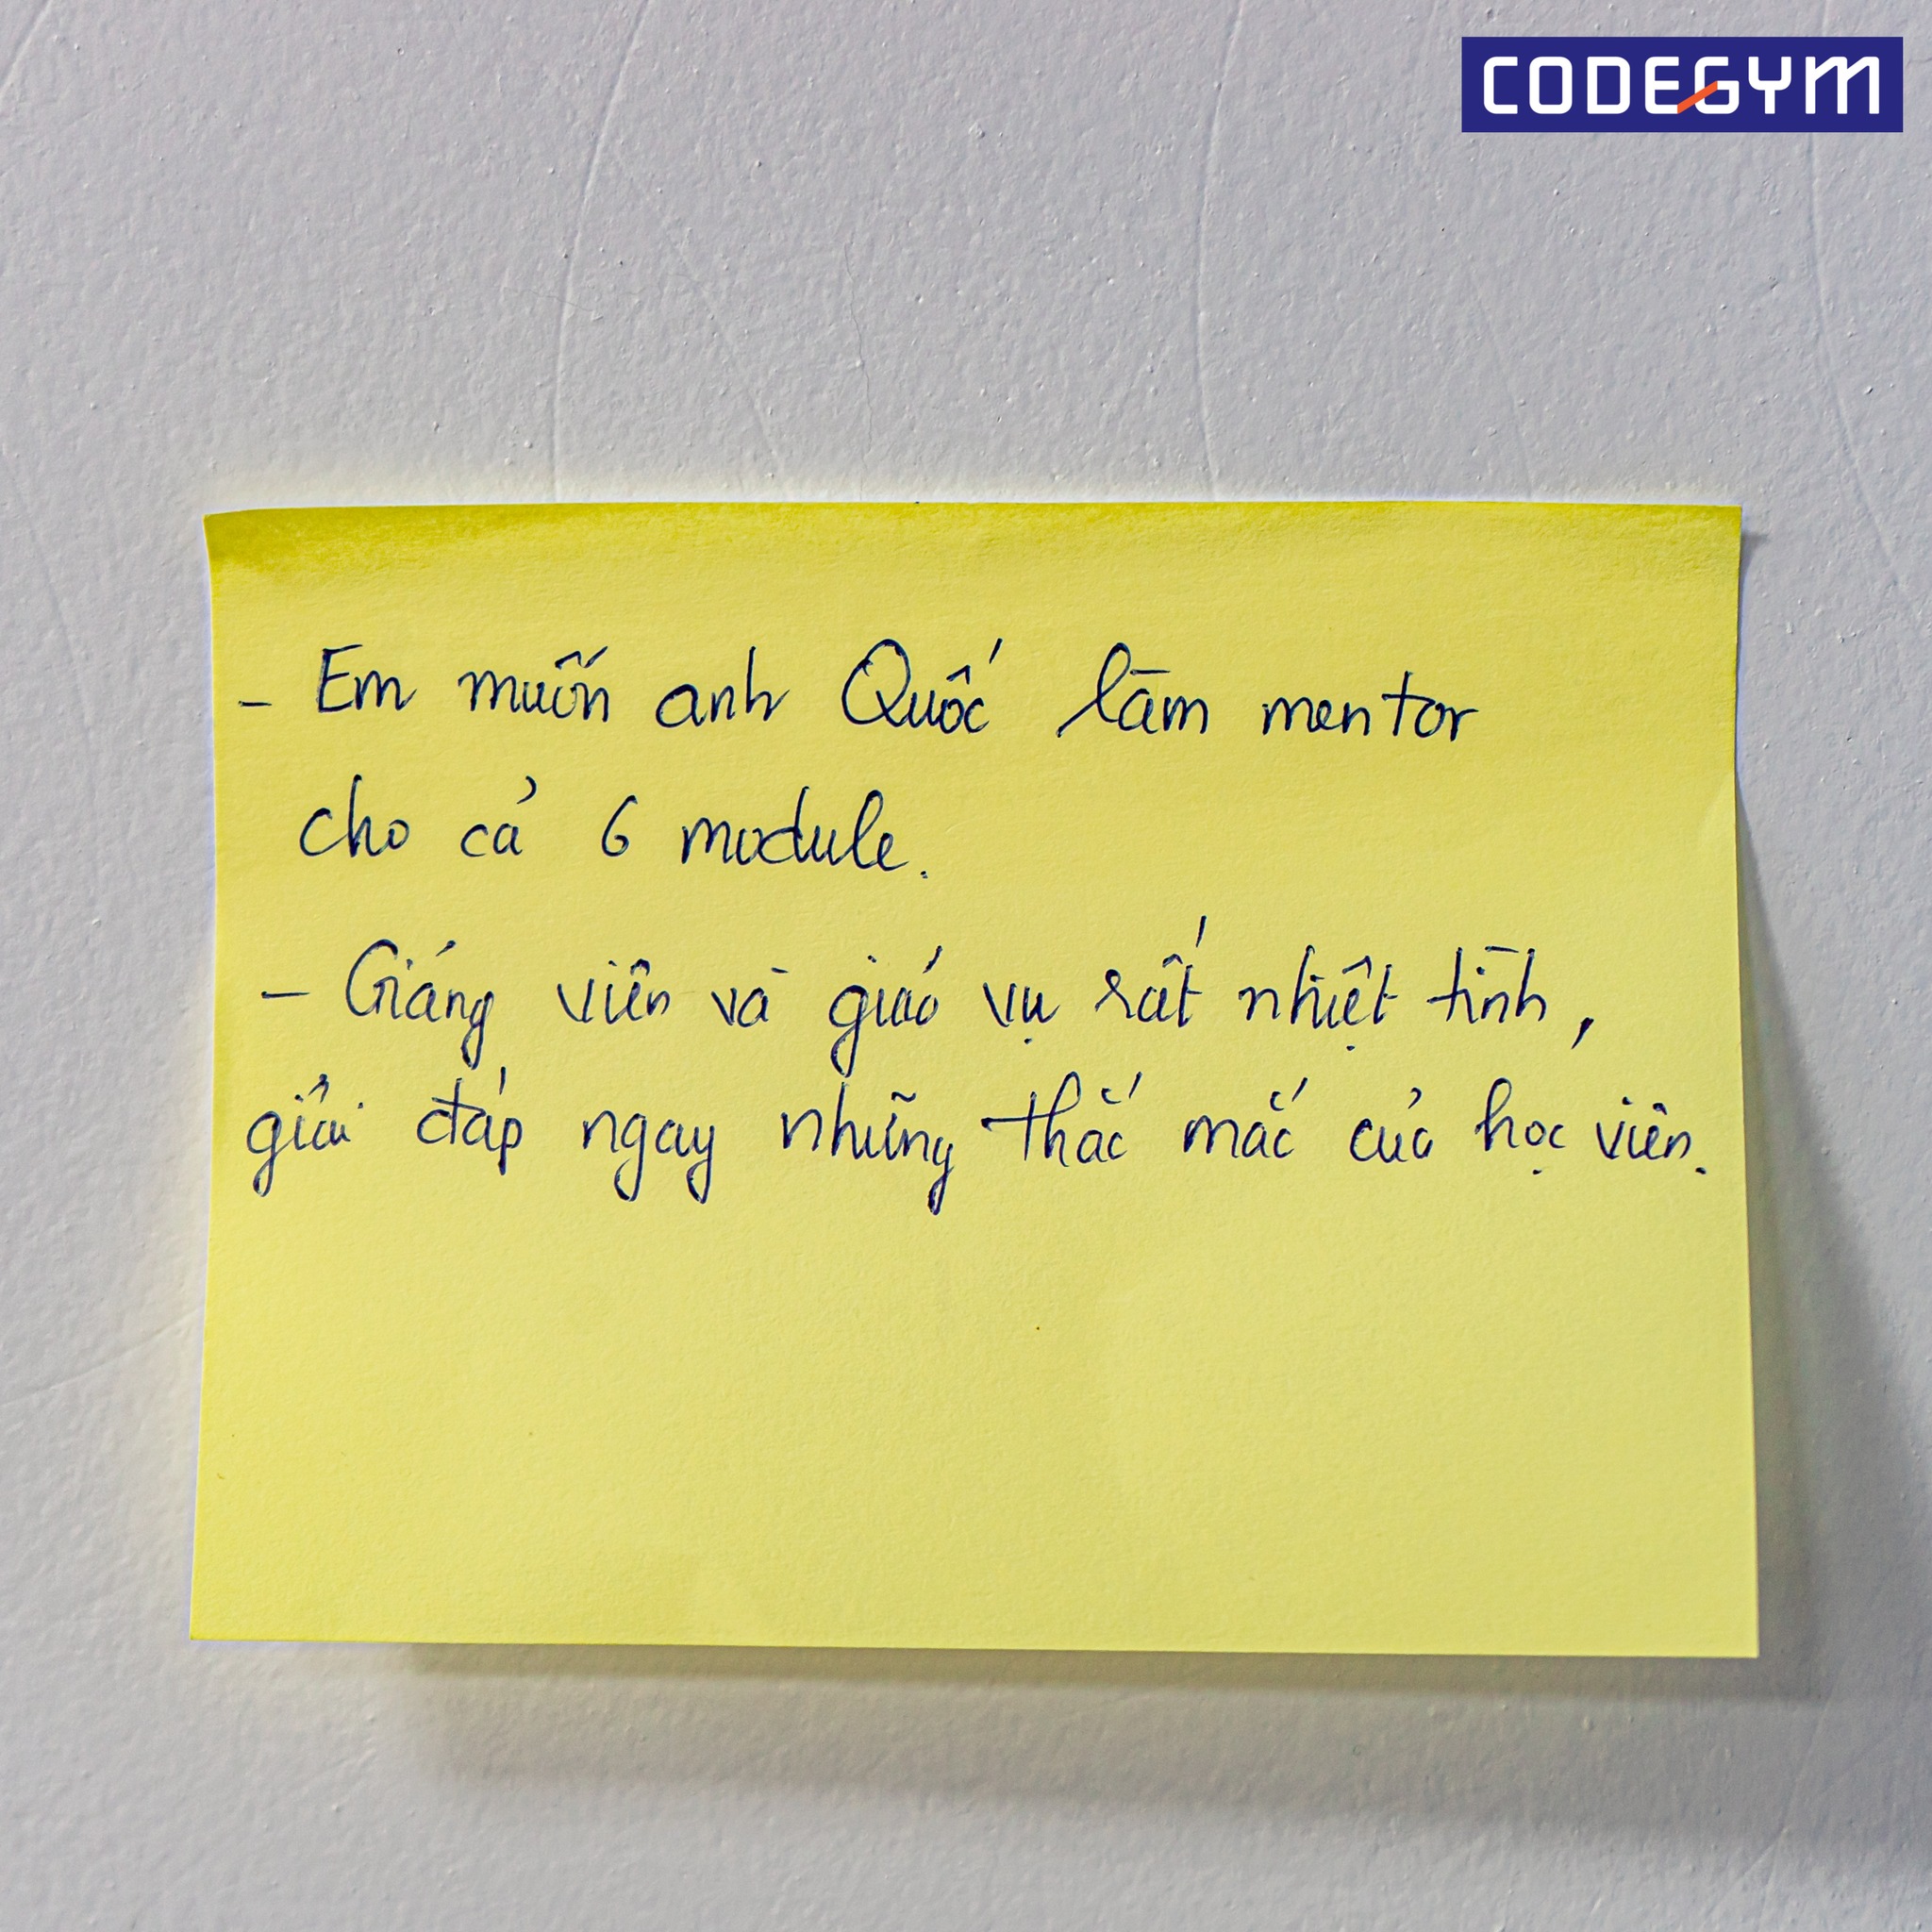 CODEGYM
- Em muốn anh Quốc làm mentor
cho cả 6 module.
- Giảng viên và giáo vụ rất nhiệt tình,
giải đáp ngay những thắc mắc của học viên.